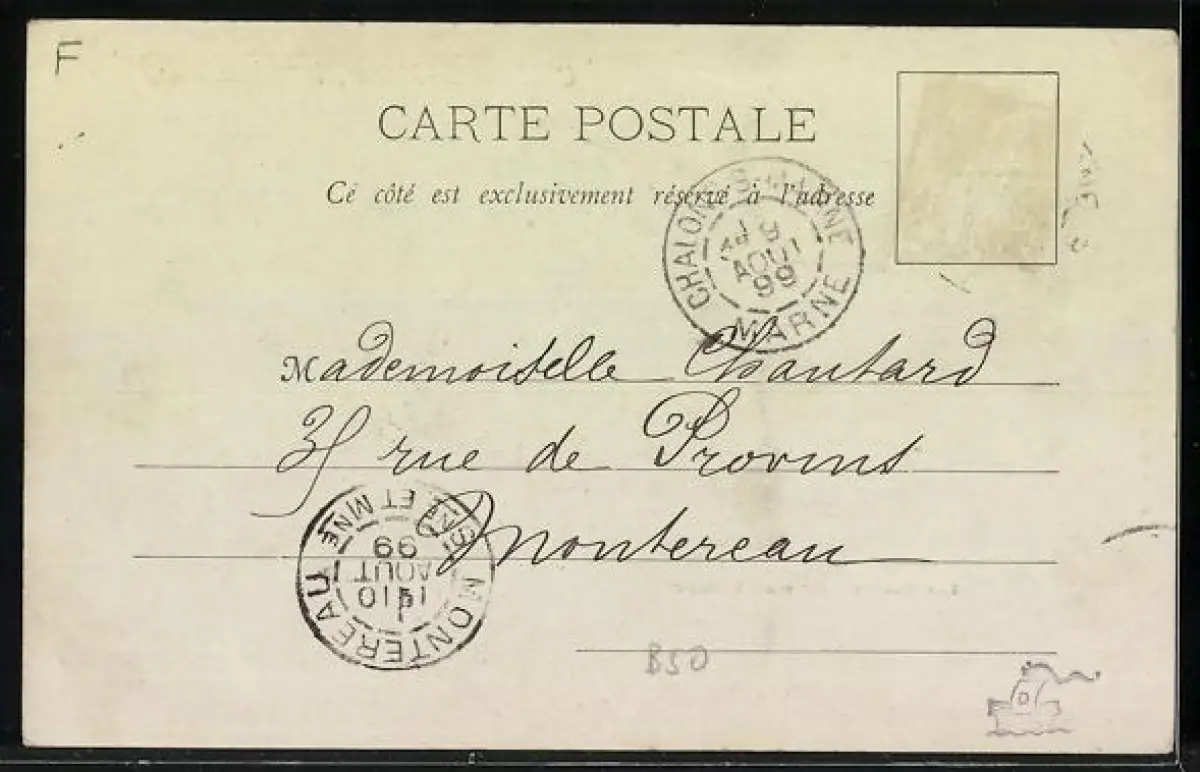 F
CARTE POSTALE
Cé côté est exclusivement réservé à l'adresse
CHALONS-S-MARNE
9
AOUT
99
MARNE
Mademoiselle Chautard
35 rue de Provins
Montereau
MONTEREAU
10
AOUT
99
ET MNE
850